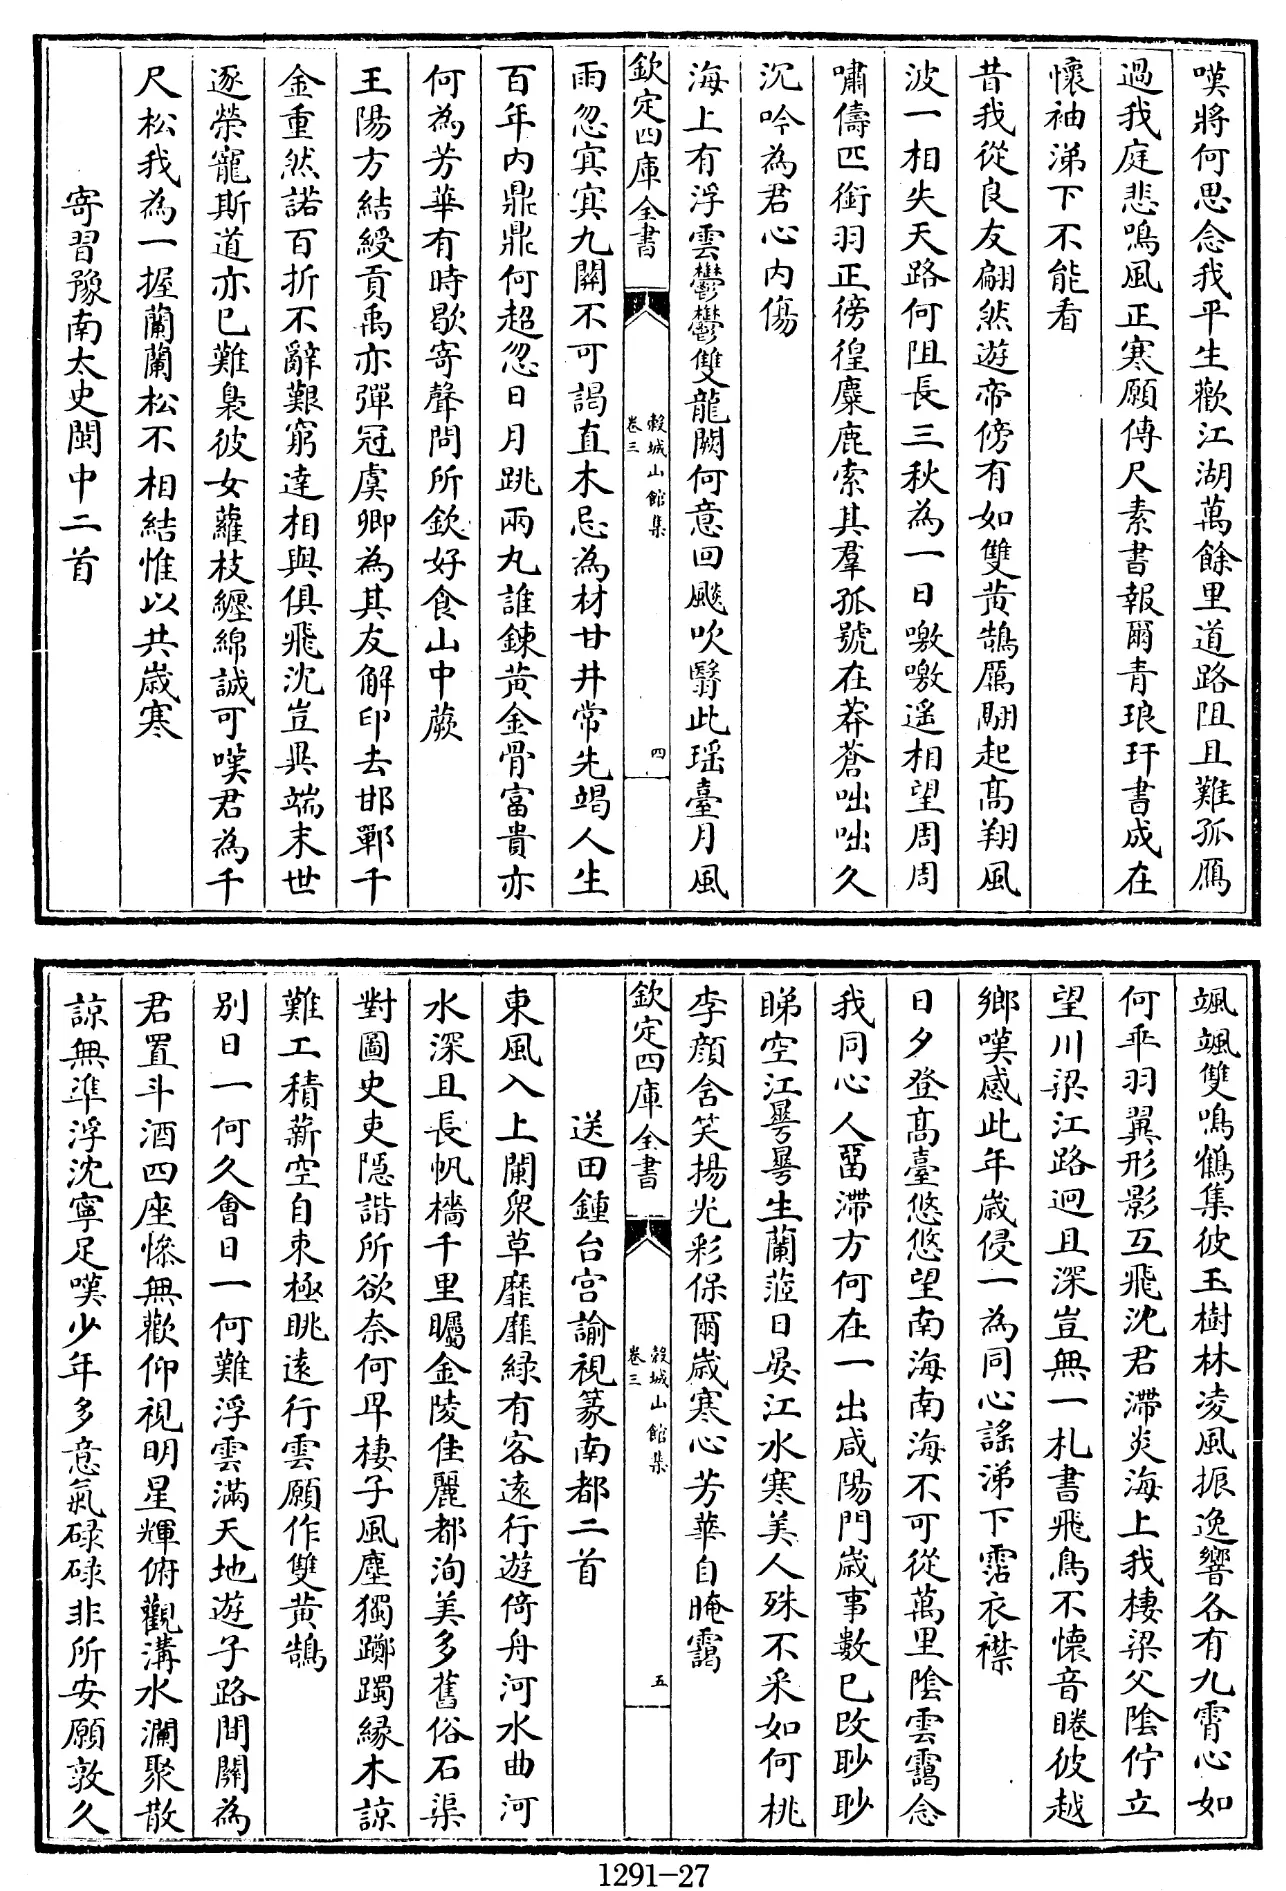 嘆將何思念我平生歡江湖萬餘里道路阻且難孤鴈
過我庭悲鳴風正寒願傳尺素書報爾青琅玕書成在
懷袖涕下不能看
昔我從良友翩然遊帝傍有如雙黄鵠厲翮起高翔風
波一相失天路何阻長三秋為一日噭噭遥相望周周
嘯儔匹銜羽正徬徨麋鹿索其羣孤號在莽蒼咄咄久
沉吟為君心内傷
海上有浮雲鬱鬱雙龍闕何意回飈吹翳此瑶臺月風
欽定四庫全書
穀城山館集
卷三
四
雨忽寘寘九關不可謁直木忌為材甘井常先竭人生
百年内鼎鼎何超忽日月跳兩丸誰鍊黄金骨富貴亦
何為芳華有時歇寄聲問所欽好食山中蕨
王陽方結綬貢禹亦彈冠虞卿為其友解印去邯鄲千
金重然諾百折不辭艱窮達相與俱飛沈豈異端末世
逐榮寵斯道亦已難裊彼女蘿枝纒綿誠可嘆君為千
尺松我為一握蘭蘭松不相結惟以共歳寒
寄習豫南太史閩中二首
颯颯雙鳴鶴集彼玉樹林凌風振逸響各有九霄心如
何乖羽翼形影互飛沈君滯炎海上我棲梁父陰佇立
望川梁江路迥且深豈無一札書飛鳥不懐音睠彼越
鄉嘆感此年歳侵一為同心謡涕下霑衣襟
日夕登髙臺悠悠望南海南海不可從萬里陰雲靄念
我同心人畱滯方何在一出咸陽門歳事數已改眇眇
睇空江㟧㟧生蘭茝日晏江水寒美人殊不采如何桃
李顔含笑揚光彩保爾歳寒心芳華自晻靄
欽定四庫全書
穀城山館集
卷三
五
送田鍾台宫諭視篆南都二首
東風入上闌衆草靡靡緑有客逺行遊倚舟河水曲河
水深且長帆檣千里矚金陵佳麗都洵美多舊俗石渠
對圖史吏隱諧所欲奈何早棲子風塵獨躑躅縁木諒
難工積薪空自束極眺逺行雲願作雙黄鵠
别日一何久會日一何難浮雲滿天地遊子路間關為
君置斗酒四座慘無歡仰視明星輝俯觀溝水瀾聚散
諒無準浮沈寧足嘆少年多意氣碌碌非所安願敦久
1291-27